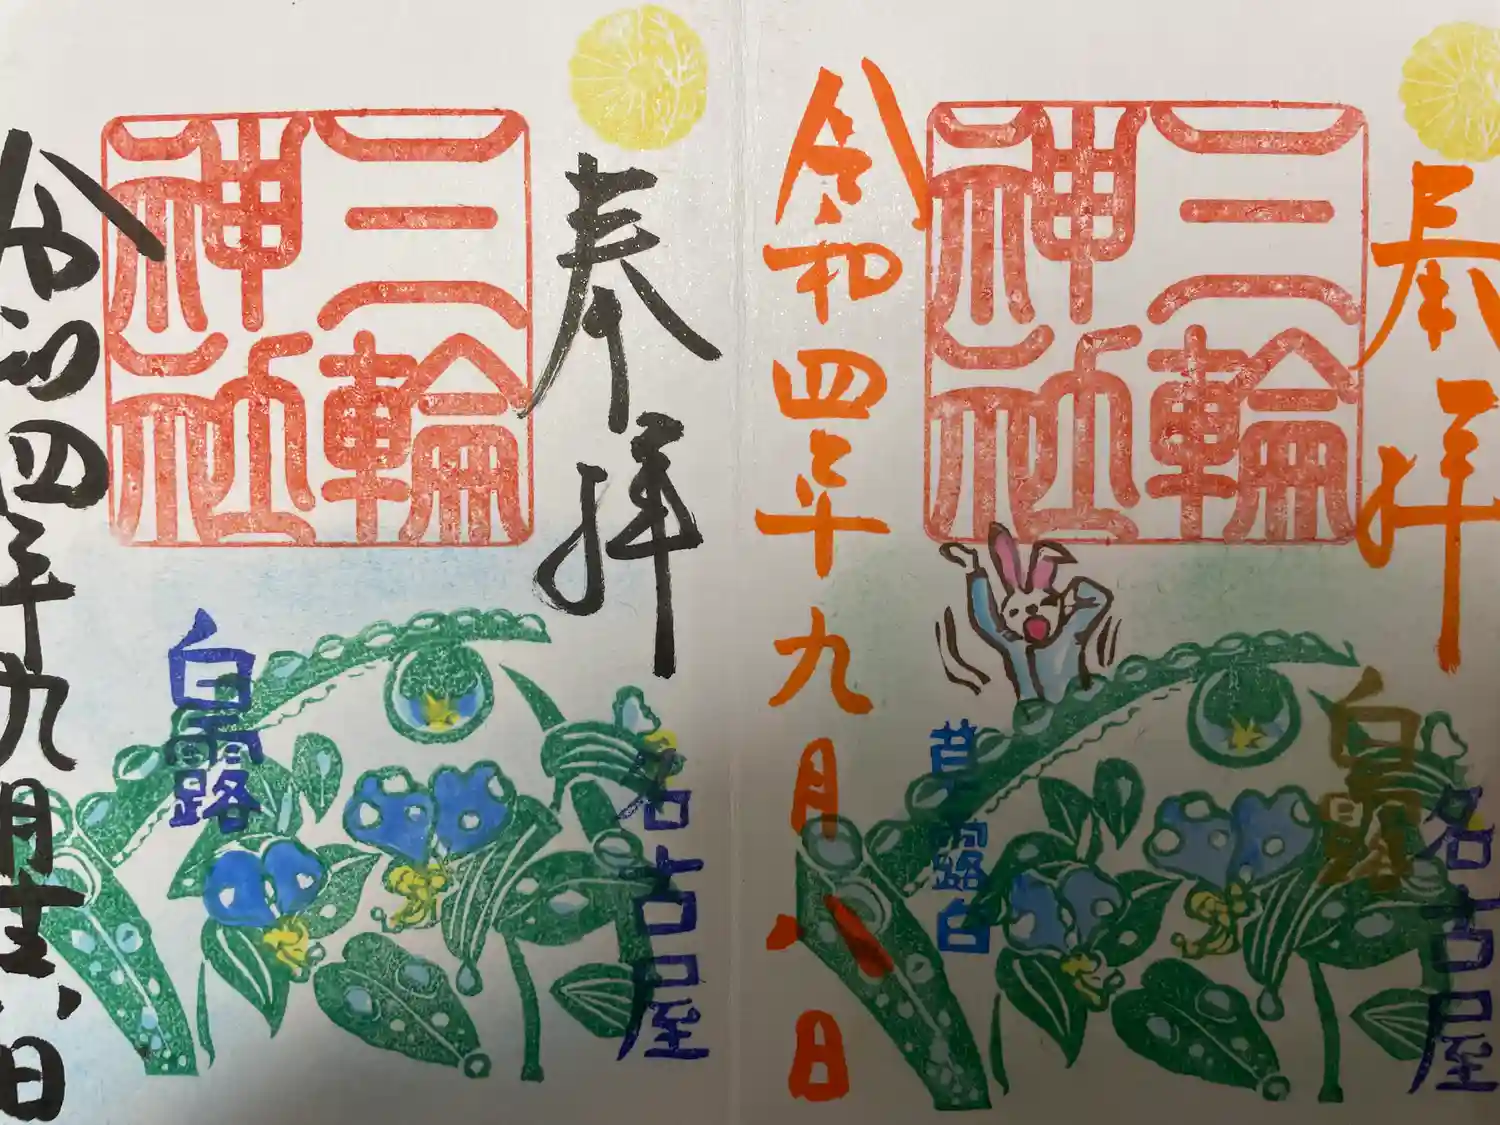 奉拝
三輪神社
白露
名古屋
草露白
令和四年九月八日
奉拝
三輪神社
白露
名古屋
令和四年九月八日